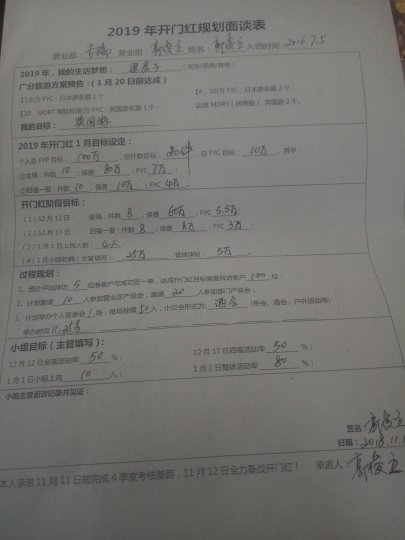 2019年开门红规划面谈表
营业部： 营业组 郭俊立 姓名：郭俊立 入司时间 2016.7.5
2019年，我的生活梦想：建房子（买车/买房/其他）
广分旅游方案预告：（1月20日前达成）
5万FYC：日本游名额1个； 10万FYC：日本游名额2个；
MDRT（离职标准）万FYC：英国游名额1个； 达成MDRT（离职标）：英国游2个。
我的目标：英国游
2019年开门红1月目标设定：
个人总FYP目标：100万，总件数目标：20件，总FYC目标：10万，其中：
①金瑞：件数10；保费80万；FYC 7万；
②四福一星：件数10；保费10万；FYC 4万。
开门红阶段目标：
（1）12月12日：金瑞：件数8；保费60万；FYC 5.5万；
（2）12月17日 四福一星：件数8；保费8万；FYC 3万
（3）1月1日上岗人数：4人
（4）1月小组初佣（主管填写）：25万，管理津贴：5万。
过程规划：
1、预计平均拜访5位准客户可成功签一单，达成开门红目标需要拜访客户100位；
2、计划邀请10人参加营业区产说会，邀请20人参加部门产说会；
3、计划举办个人答谢会1场，每场规模50人，小交会形式为：酒会（茶会、酒会、户外活动等）
举办时间11.25号
小组目标（主管填写）：
12月12日金瑞活动率50%； 12月17日四福活动率50%；
1月1日小组上岗10人； 1月1日整体活动率80%；
小组主管面谈记录并见证：
签名：郭俊立
日期：2018.11.
本人承诺11月11日前完成4季度考核差距，11月12日全力备战开门红！ 承诺人：郭俊立